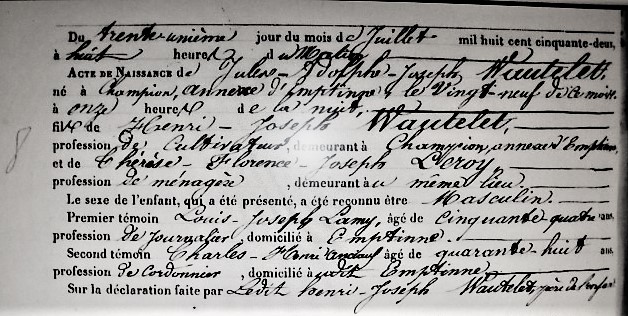 Du trente-unième jour du mois de Juillet mil huit cent cinquante-deux,
à huit heures du Matin
ACTE DE NAISSANCE de Jules-Adolphe-Joseph Wautelet,
né à Champion, annexe d'Emptinne, le Vingt-neuf de ce mois
à onze heures de la nuit,
fils de Henri-Joseph Wautelet,
profession de Cultivateur, demeurant à Champion, annexe d'Emptinne
et de Thérèse-Florence-Joseph Leroy,
profession de ménagère, demeurant au même lieu.
Le sexe de l'enfant, qui a été présenté, a été reconnu être Masculin.
Premier témoin Louis-Joseph Lamy, âgé de Cinquante quatre ans
profession de Journalier, domicilié à Emptinne.
Second témoin Charles-Henri âgé de quarante-huit ans
profession de Cordonnier, domicilié à Emptinne
Sur la déclaration faite par Ledit henri-Joseph Wautelet, père de l'enfant
8